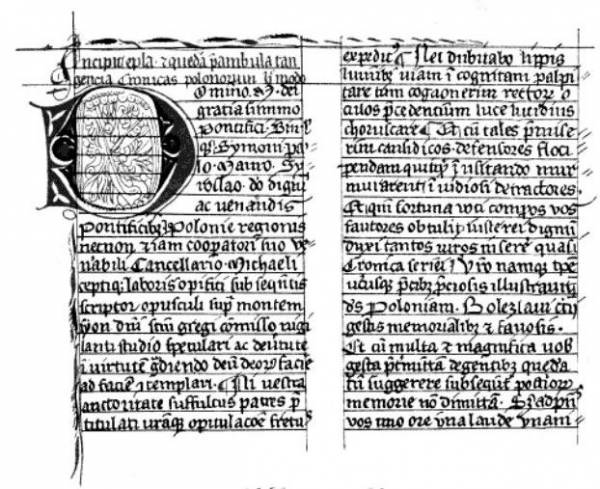 Incipit epla. & quedā p̄ambula tan
gencia Cronicas polonorum modo
Domino. M. dei
gratia summo
pontifici. Simul
q; Symoni pa
lo. Mauro. Sy
roslao. do dignis
ac venandis
pontificib; Polonie regionis
necnon etiam coopatori suo ve
nabili Cancellario. Michaeli
ceptiq; laboris opifici subseqntis
scriptor opusculi sup montem
syon dni scm gregi comisso vigi
lanti studio speculari ac de virtute
i virtute gdiendo deum deor facie
ad facie 9templari. Ni vestra
auctoritate suffulcus patres p
titulati opitulacoe fretus
expeditus lippis
lumibus viam icognitam palpi
tare tam cognouerim rector o
culos pcedencium luce lucidius
choruscare. Et cu tales pmise
rim causidicos. defensores floci
pendam i uisitando mur
murauerint i uidiosi detractores.
Et qm fortuna voti compos vos
fautores obtulit iuste rei dignu
duxi tantos viros inserere quasi
Cronica seriei. Vro namque tpe
pcib; pciosis illustrauit
ds Poloniam. Bolezlaui tcii
gestis memorialib; & famosis.
Et cu multa & magnifica vob
gesta ptmittam degentibus queda
tn suggerere subseqntu postor
memorie no dimittam. S; ad psns
vos uno ore vna laude vnani